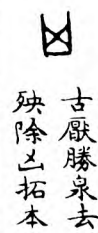 古厭勝泉去
殃除凶拓本